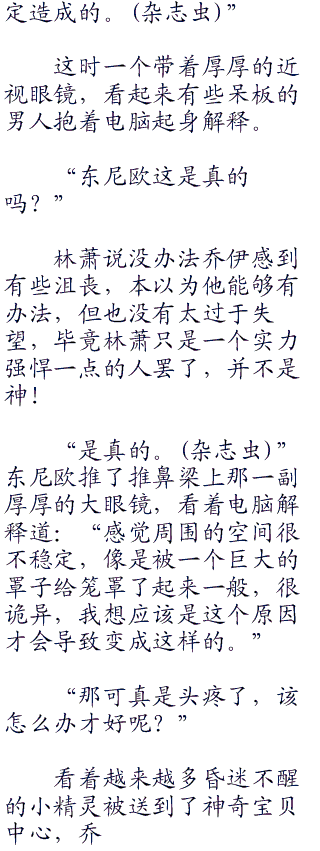 定造成的。(杂志虫)”
这时一个带着厚厚的近
视眼镜，看起来有些呆板的
男人抱着电脑起身解释。
“东尼欧这是真的
吗？”
林萧说没办法乔伊感到
有些沮丧，本以为他能够有
办法，但也没有太过于失
望，毕竟林萧只是一个实力
强悍一点的人罢了，并不是
神！
“是真的。(杂志虫)”
东尼欧推了推鼻梁上那一副
厚厚的大眼镜，看着电脑解
释道：“感觉周围的空间很
不稳定，像是被一个巨大的
罩子给笼罩了起来一般，很
诡异，我想应该是这个原因
才会导致变成这样的。”
“那可真是头疼了，该
怎么办才好呢？”
看着越来越多昏迷不醒
的小精灵被送到了神奇宝贝
中心，乔